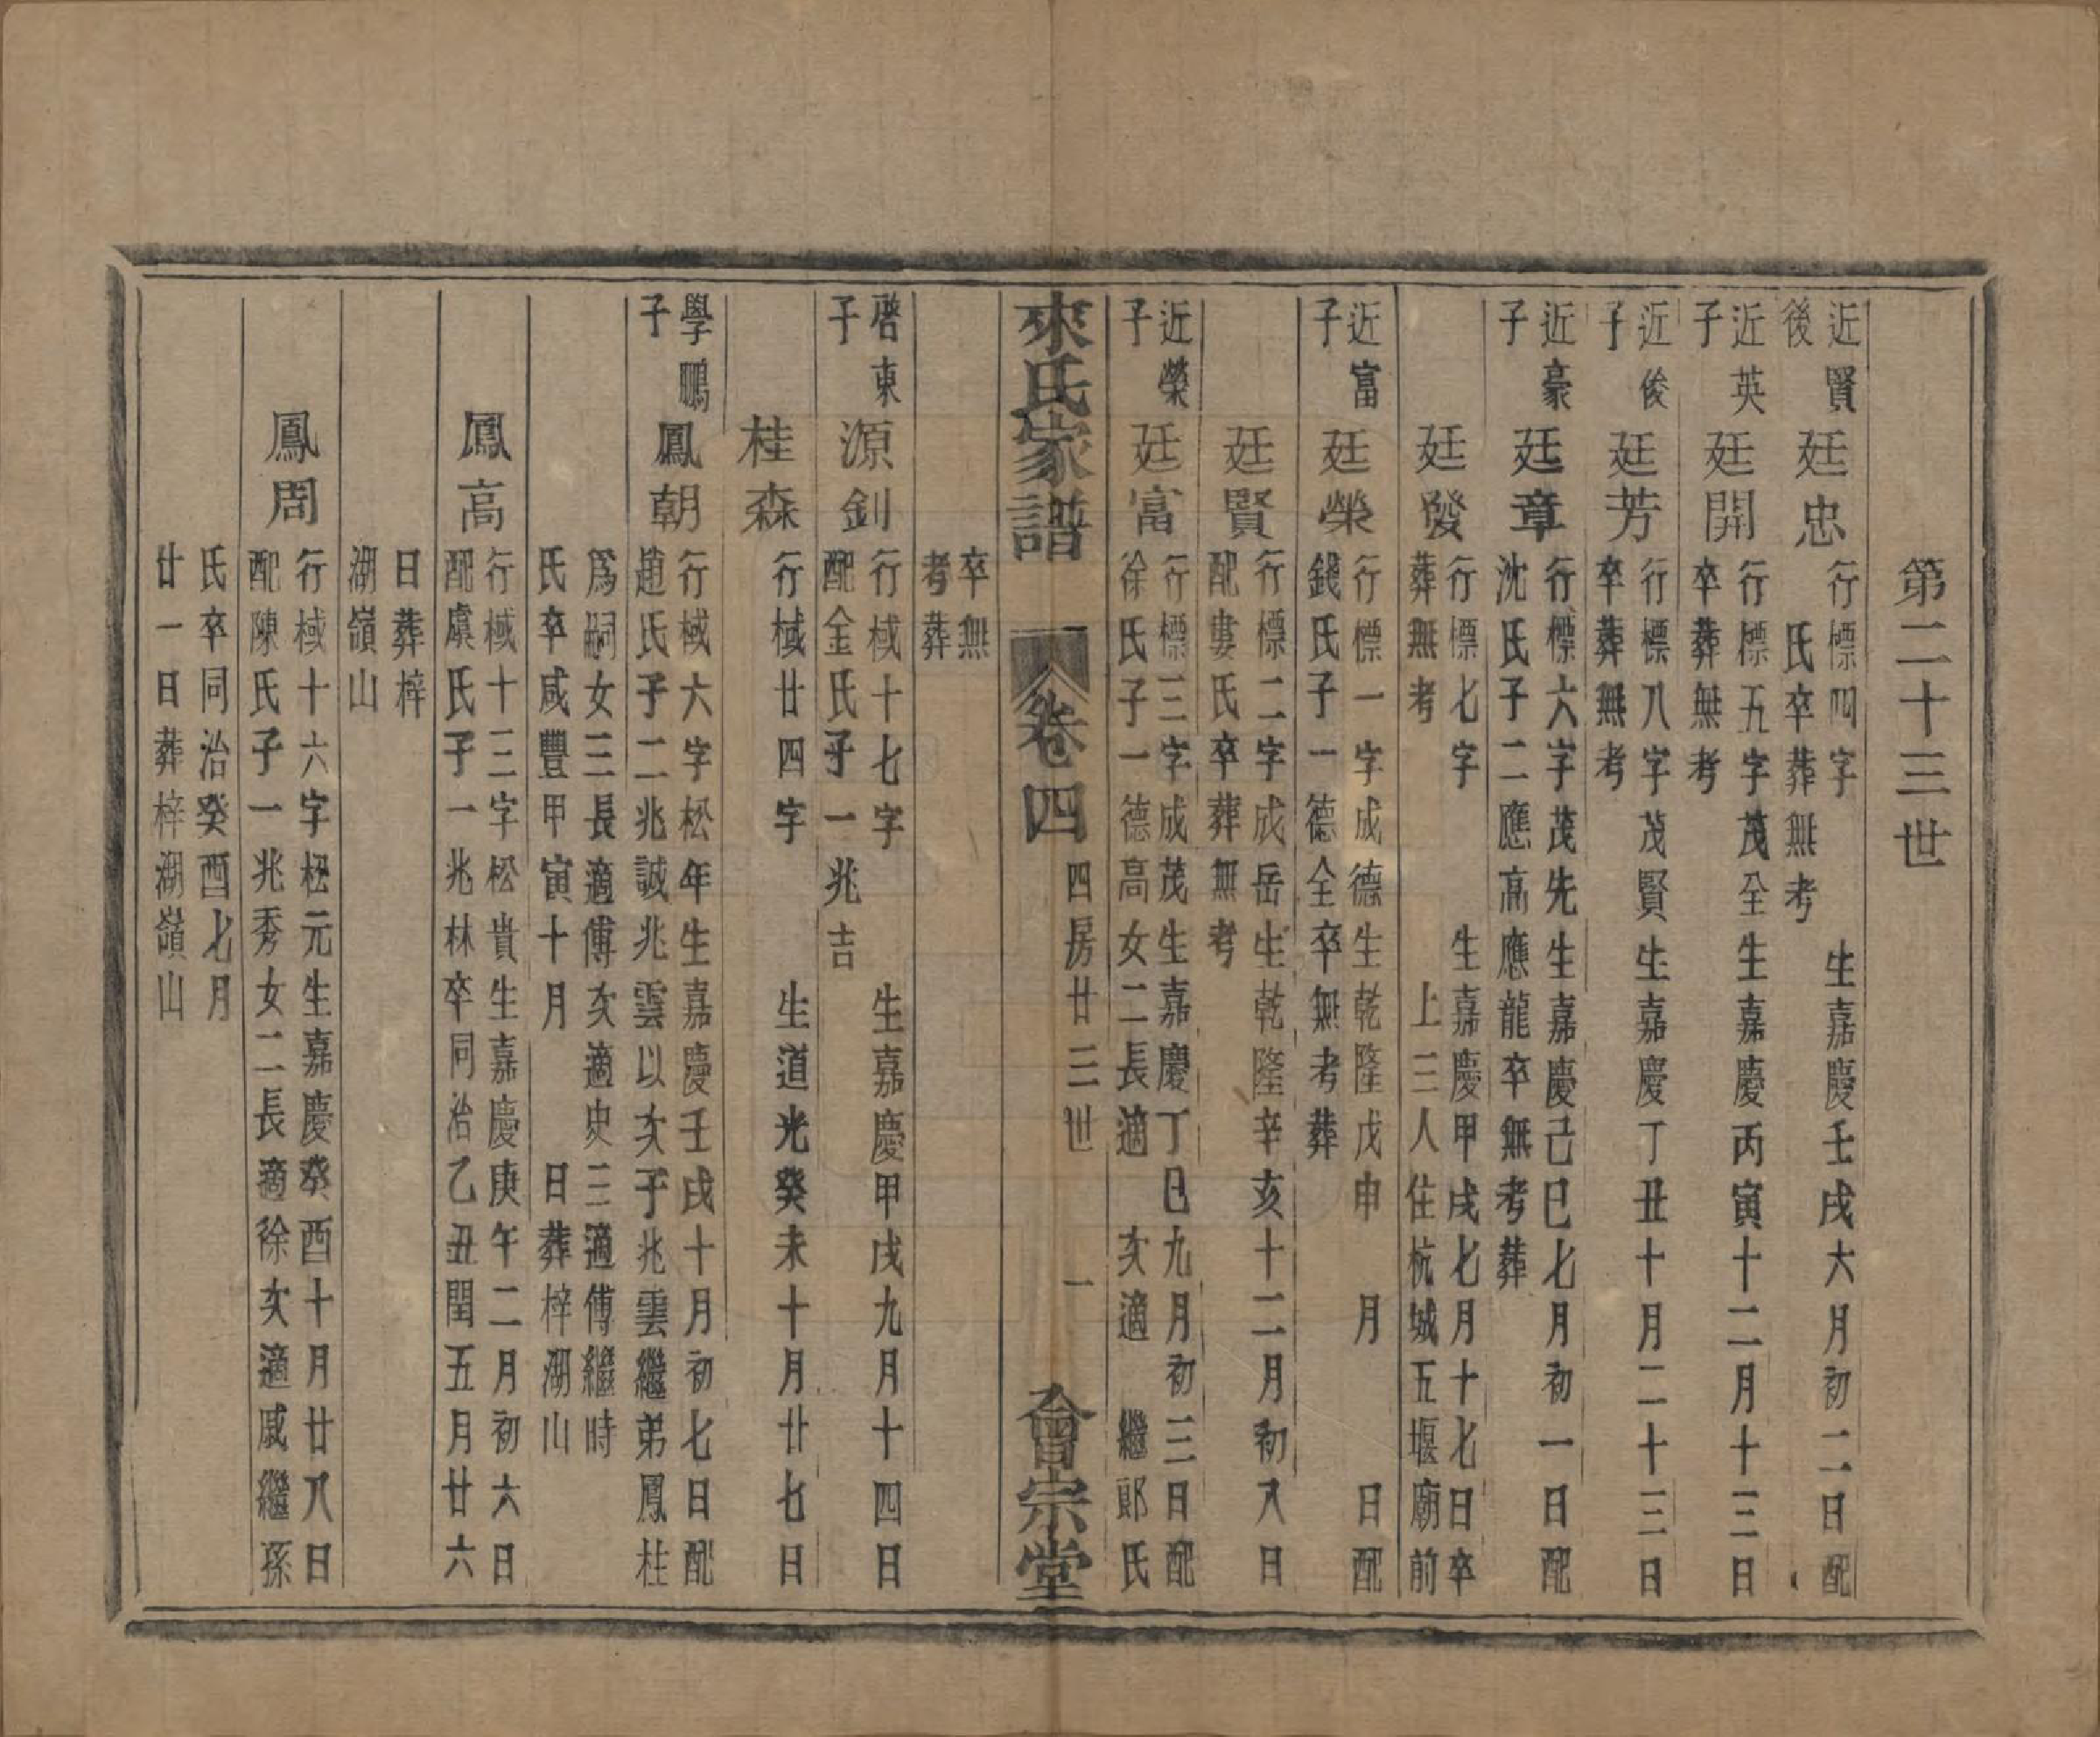 第二十三世
近賢
後
廷忠
行標四字　　生嘉慶壬戌六月初二日配
氏卒葬無考
近英
子
廷開
行標五字茂全生嘉慶丙寅十二月十三日
卒葬無考
近俊
子
廷芳
行標八字茂賢生嘉慶丁丑十月二十三日
卒葬無考
近豪
子
廷章
行標六字茂先生嘉慶己巳七月初一日配
沈氏子二應高應龍卒無考葬
廷發
行標七字　　生嘉慶甲戌七月十七日卒
葬無考　　上三人住杭城五堰廟前
近富
子
廷榮
行標一字成德生乾隆戊申　月　　日配
錢氏子一德全卒無考葬
廷賢
行標二字成岳生乾隆辛亥十二月初八日
配婁氏卒葬無考
近榮
子
廷富
行標三字成茂生嘉慶丁巳九月初三日配
徐氏子一德高女二長適　次適　繼郞氏
來氏家譜　卷四　四房廿三世　一　會宗堂
卒無
考葬
啓東
子
源釗
行棫十七字　　生嘉慶甲戌九月十四日
配金氏子一兆吉
桂森
行棫廿四字　　生道光癸未十月廿七日
學鵬
子
鳳朝
行棫六字松年生嘉慶壬戌十月初七日配
趙氏子二兆誠兆雲以次子兆雲繼弟鳳柱
爲嗣女三長適傅次適史三適傅繼時
氏卒咸豐甲寅十月　　日葬梓湖山
鳳高
行棫十三字松貴生嘉慶庚午二月初六日
配虞氏子一兆林卒同治乙丑閏五月廿六
日葬梓
湖嶺山
鳳周
行棫十六字松元生嘉慶癸酉十月廿八日
配陳氏子一兆秀女二長適徐次適戚繼孫
氏卒同治癸酉七月
廿一日葬梓湖嶺山